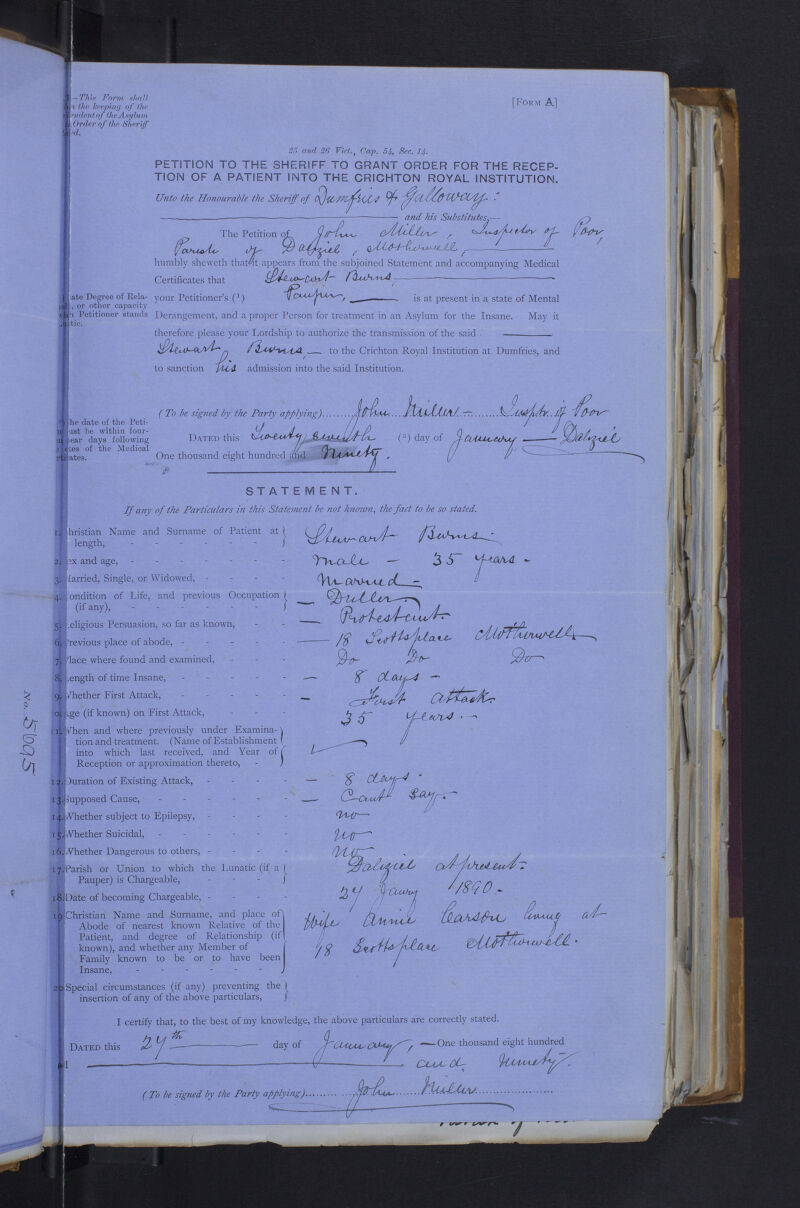 —This Form shall
the keeping of the
endent of the Asylum
Order of the Sheriff
[FORM A.]
25 and 26 Vict., Cap. 54, Sec. 14.
PETITION TO THE SHERIFF TO GRANT ORDER FOR THE RECEP-
TION OF A PATIENT INTO THE CRICHTON ROYAL INSTITUTION.
Unto the Honourable the Sheriff of Dumfries & Galloway :
and his Substitutes,—
The Petition of John Miller, Inspector of Poor,
Parish of Dalziel, Motherwell,
humbly sheweth that it appears from the subjoined Statement and accompanying Medical
Certificates that Stewart Burns
ate Degree of Rela-
, or other capacity
Petitioner stands
your Petitioner's (1) Pauper, is at present in a state of Mental
Derangement, and a proper Person for treatment in an Asylum for the Insane. May it
therefore please your Lordship to authorize the transmission of the said
Stewart Burns, — to the Crichton Royal Institution at Dumfries, and
to sanction his admission into the said Institution.
(To be signed by the Party applying) John Miller — Inspr. of Poor
he date of the Peti-
ust be within four-
ear days following
of the Medical
ates.
DATED this Twenty seventh (2) day of January — Dalziel
One thousand eight hundred and Ninety.
STATEMENT.
If any of the Particulars in this Statement be not known, the fact to be so stated.
1. hristian Name and Surname of Patient at length, Stewart Burns
2. ex and age, male — 35 years —
3. arried, Single, or Widowed, Married —
4. ondition of Life, and previous Occupation (if any), — Duller —
5. eligious Persuasion, so far as known, — Protestant
6. revious place of abode, — 18 Scotts place Motherwell
7. lace where found and examined, Do Do Do
8. ength of time Insane, — 8 days —
9. Whether First Attack, — First Attack
ge (if known) on First Attack, 35 years —
11. When and where previously under Examina-
tion and treatment. (Name of Establishment
into which last received, and Year of
Reception or approximation thereto,
12. Duration of Existing Attack, — 8 days
13. Supposed Cause, — Cant say
14. Whether subject to Epilepsy, no
15. Whether Suicidal, no
16. Whether Dangerous to others, no
17. Parish or Union to which the Lunatic (if a Pauper) is Chargeable, Dalziel at present
18. Date of becoming Chargeable, 27 Jany 1890
19. Christian Name and Surname, and place of
Abode of nearest known Relative of the
Patient, and degree of Relationship (if
known), and whether any Member of
Family known to be or to have been
Insane,
Wife Annie Carson living at
18 Scotts place Motherwell
20. Special circumstances (if any) preventing the
insertion of any of the above particulars,
No. 5095
I certify that, to the best of my knowledge, the above particulars are correctly stated.
DATED this 27th day of January, — One thousand eight hundred
and Ninety.
(To be signed by the Party applying) John Miller